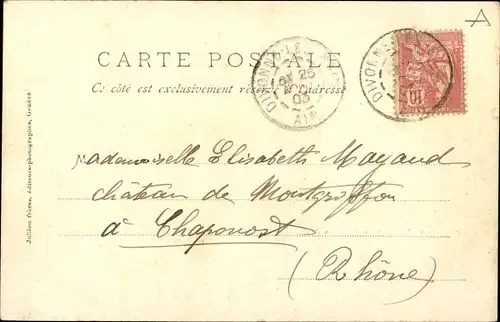 A
CARTE POSTALE
Ce côté est exclusivement réservé à l'adresse
DIVONNE-LE
25
AOUT
03
AIN
DIVONNE
10
Mademoiselle Elisabeth Mayaud
château de Montgriffon
à Chaponost
(Rhône)
Jullien frères, éditeurs-photographes, Genève